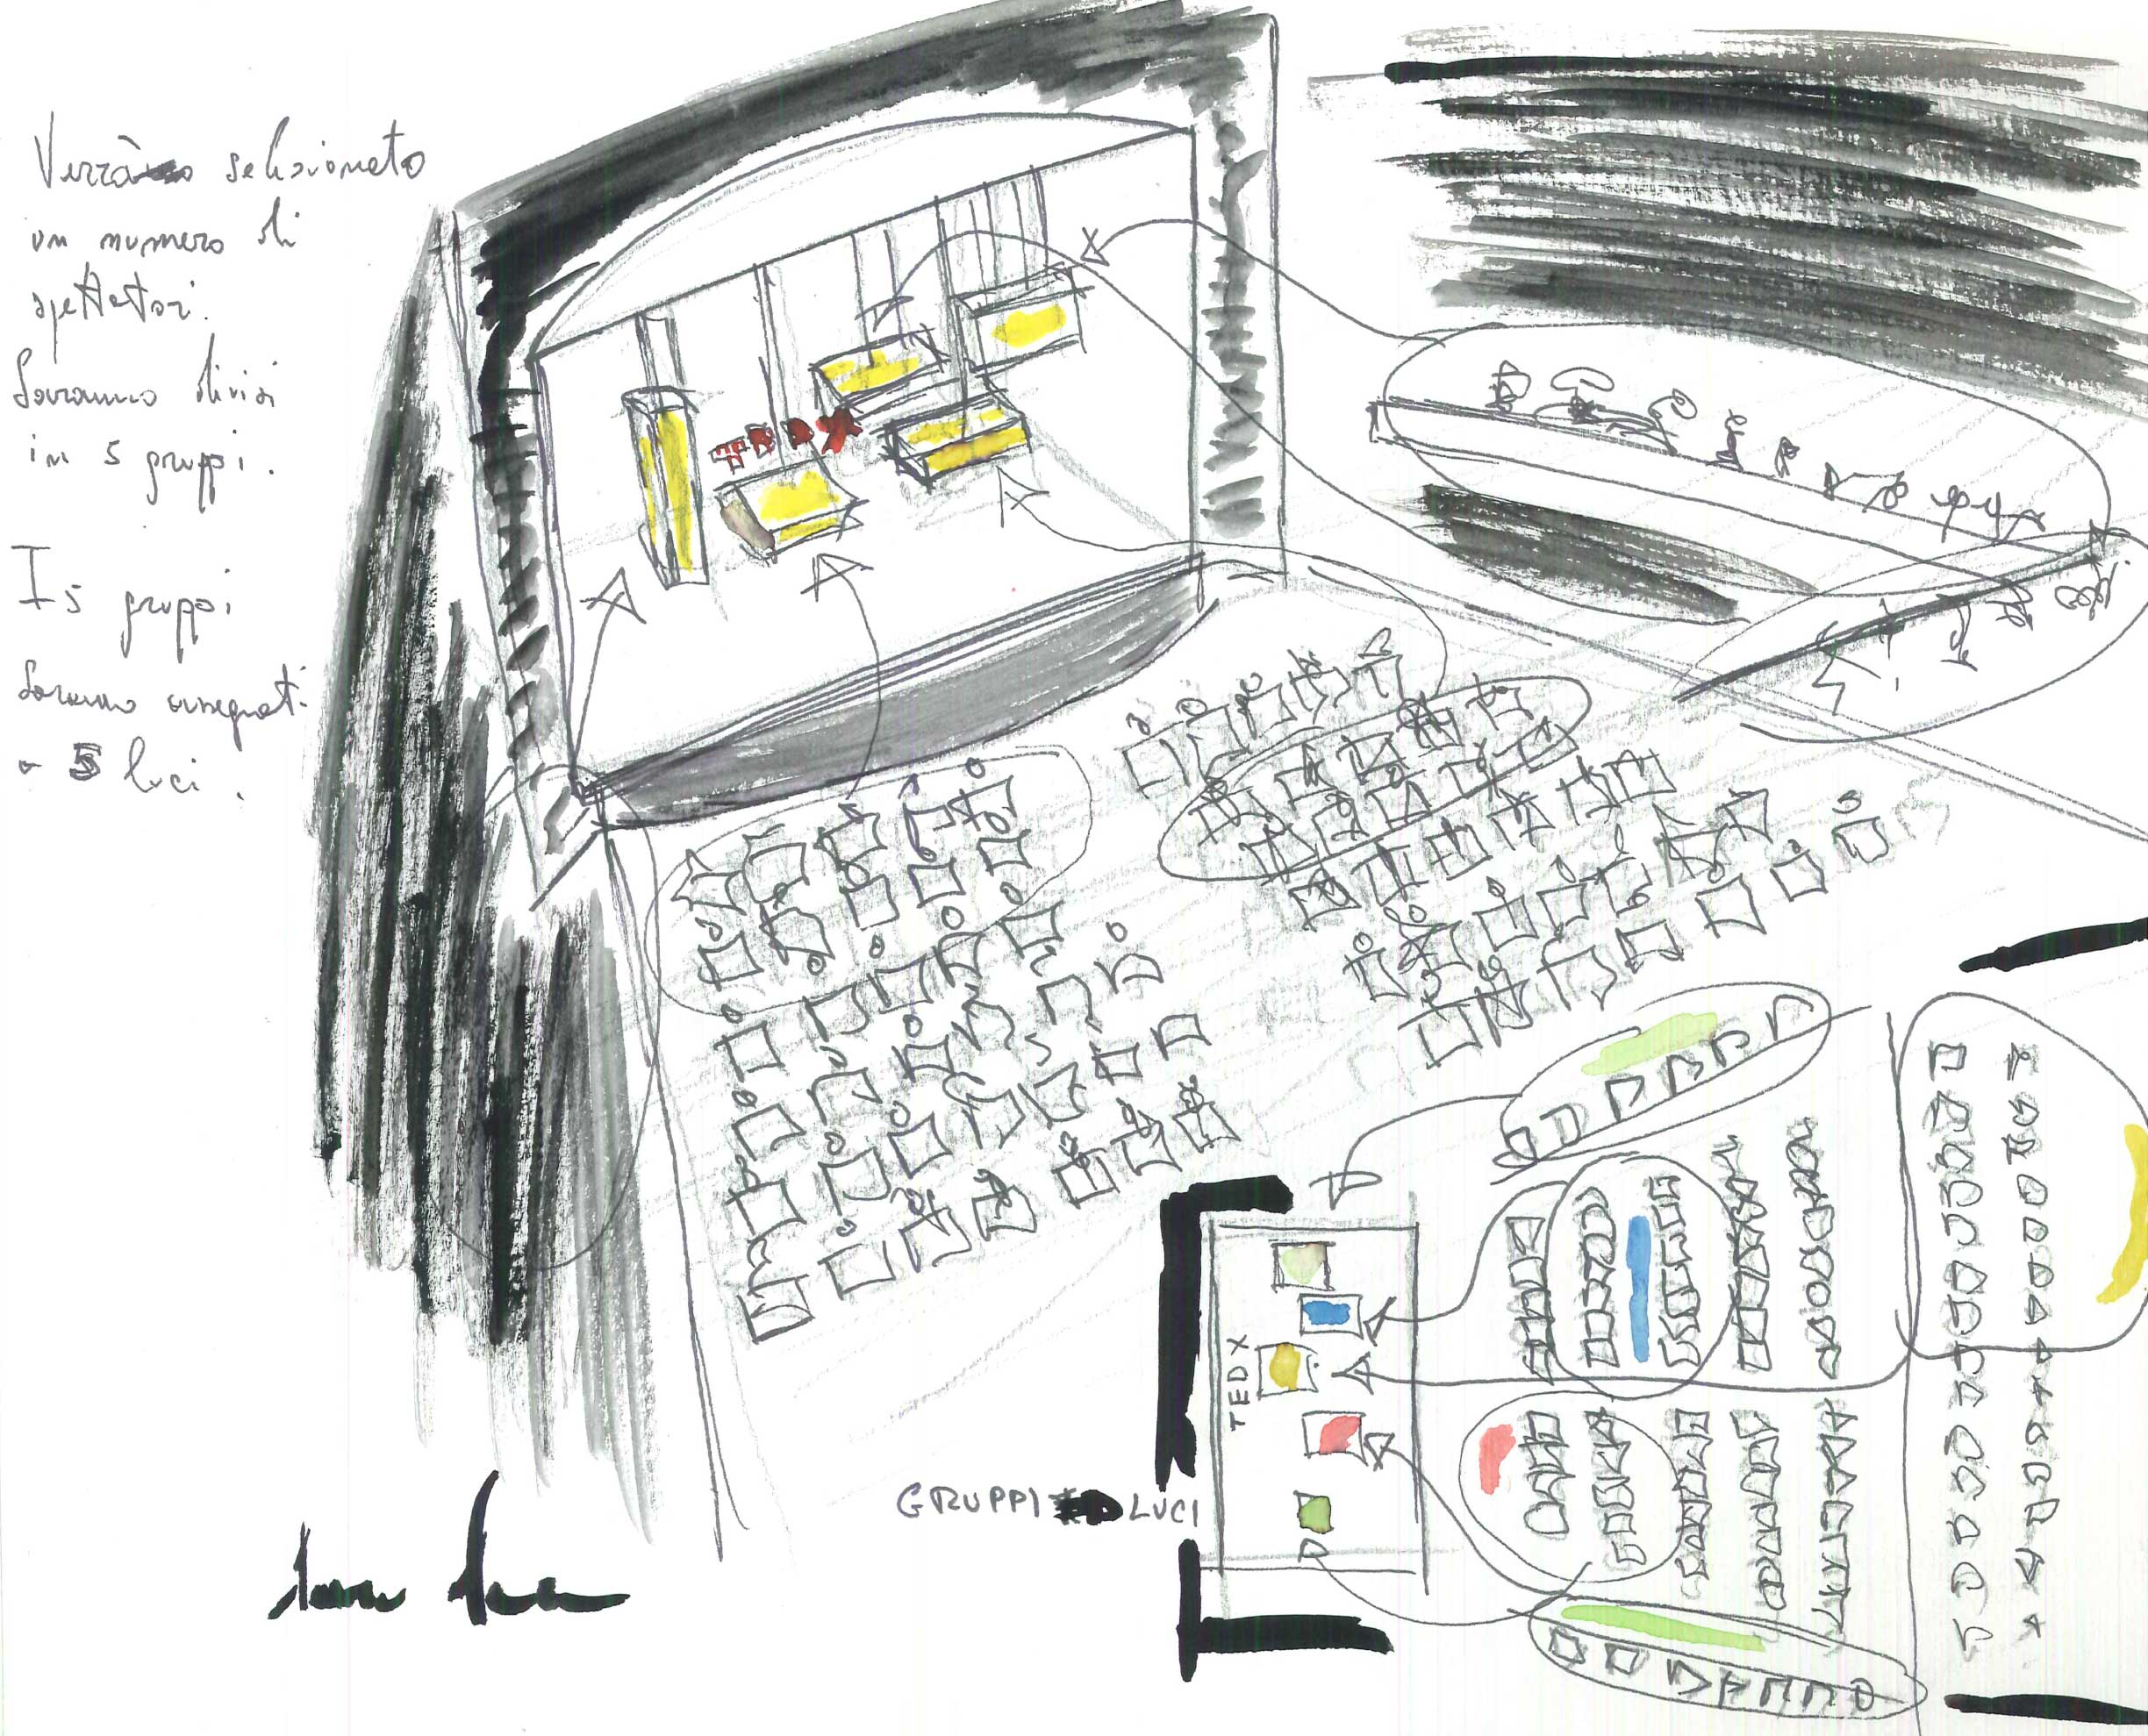 Verrà selezionato
un numero di
spettatori.
Saranno divisi
in 5 gruppi.
I 5 gruppi
saranno assegnati
a 5 luci.
TEDX
TEDX
GRUPPI LUCI